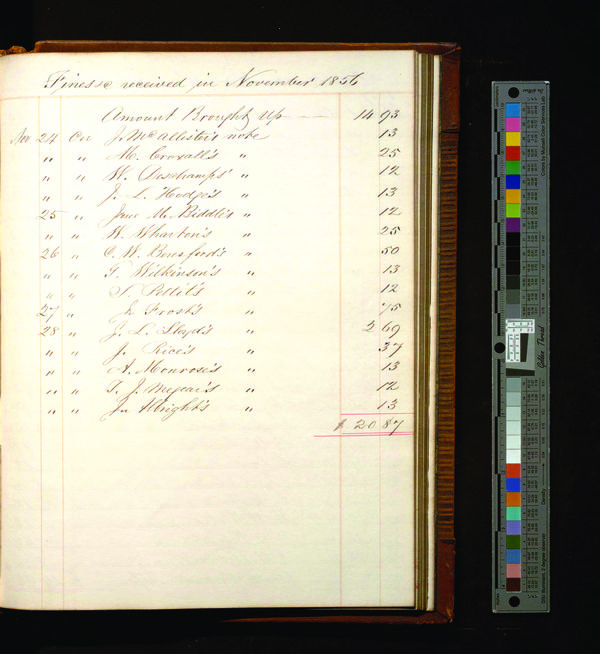 Fines &c received in November 1856
Amount Brought Up 14 93
Nov 24 On J. McAllister's note 13
" " M. Croxall's " 25
" " W. Deschamps' " 12
" " J. L. Hodge's " 13
25 " Jane M. Biddle's " 12
" " W. Wharton's " 25
26 " C. W. " 50
" " T. Wilkinson's " 13
" " S. Pettit's " 12
27 " Frost's " 75
28 " J. L. " 2 69
" " J. Rice's " 37
" " A. Monrose's " 13
" " T. J. " 12
" " Wright's " 13
$ 20 87